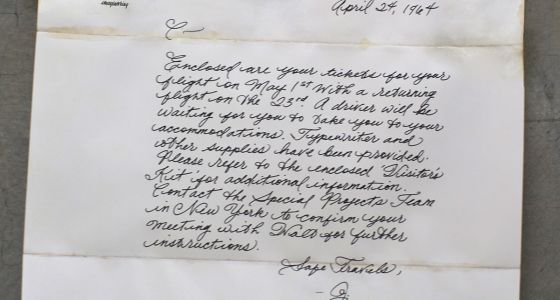 April 24, 1964
C—
Enclosed are your tickets for your
flight on May 1st with a returning
flight on the 23rd. A driver will be
waiting for you to take you to your
accommodations. Typewriter and
other supplies have been provided.
Please refer to the enclosed 'Visitor's
Kit' for additional information.
Contact the Special Projects Team
in New York to confirm your
meeting with Walt for further
instructions.
Safe Travels,